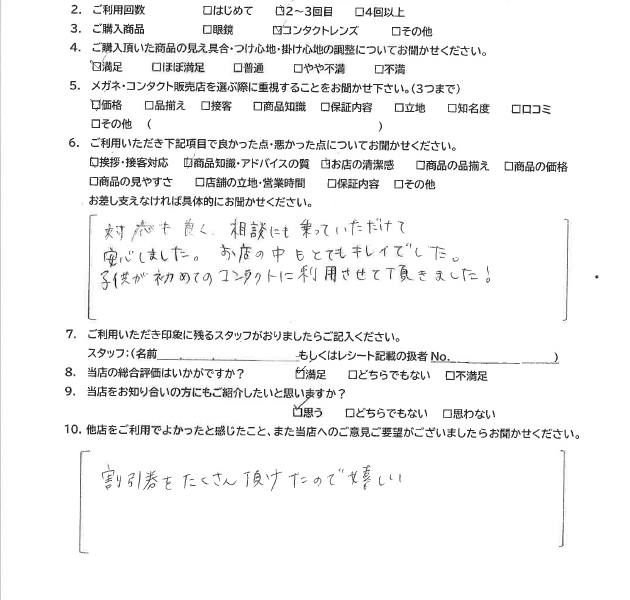 2. ご利用回数 □はじめて ☑2～3回目 □4回以上
3. ご購入商品 □眼鏡 ☑コンタクトレンズ □その他
4. ご購入頂いた商品の見え具合・つけ心地・掛け心地の調整についてお聞かせください。
☑満足 □ほぼ満足 □普通 □やや不満 □不満
5. メガネ・コンタクト販売店を選ぶ際に重視することをお聞かせ下さい。(3つまで)
☑価格 □品揃え □接客 □商品知識 □保証内容 □立地 □知名度 □口コミ
□その他 ( )
6. ご利用いただき下記項目で良かった点・悪かった点についてお聞かせください。
☑挨拶・接客対応 ☑商品知識・アドバイスの質 ☑お店の清潔感 □商品の品揃え □商品の価格
□商品の見やすさ □店舗の立地・営業時間 □保証内容 □その他
お差し支えなければ具体的にお聞かせください。
対応も良く、相談にも乗っていただけて
安心しました。 お店の中もとてもキレイでした。
子供が初めてのコンタクトに利用させて頂きました!
7. ご利用いただき印象に残るスタッフがおりましたらご記入ください。
スタッフ:(名前 もしくはレシート記載の扱者 No. )
8. 当店の総合評価はいかがですか? ☑満足 □どちらでもない □不満足
9. 当店をお知り合いの方にもご紹介したいと思いますか?
☑思う □どちらでもない □思わない
10. 他店をご利用でよかったと感じたこと、また当店へのご意見ご要望がございましたらお聞かせください。
割引券をたくさん頂けたので嬉しい